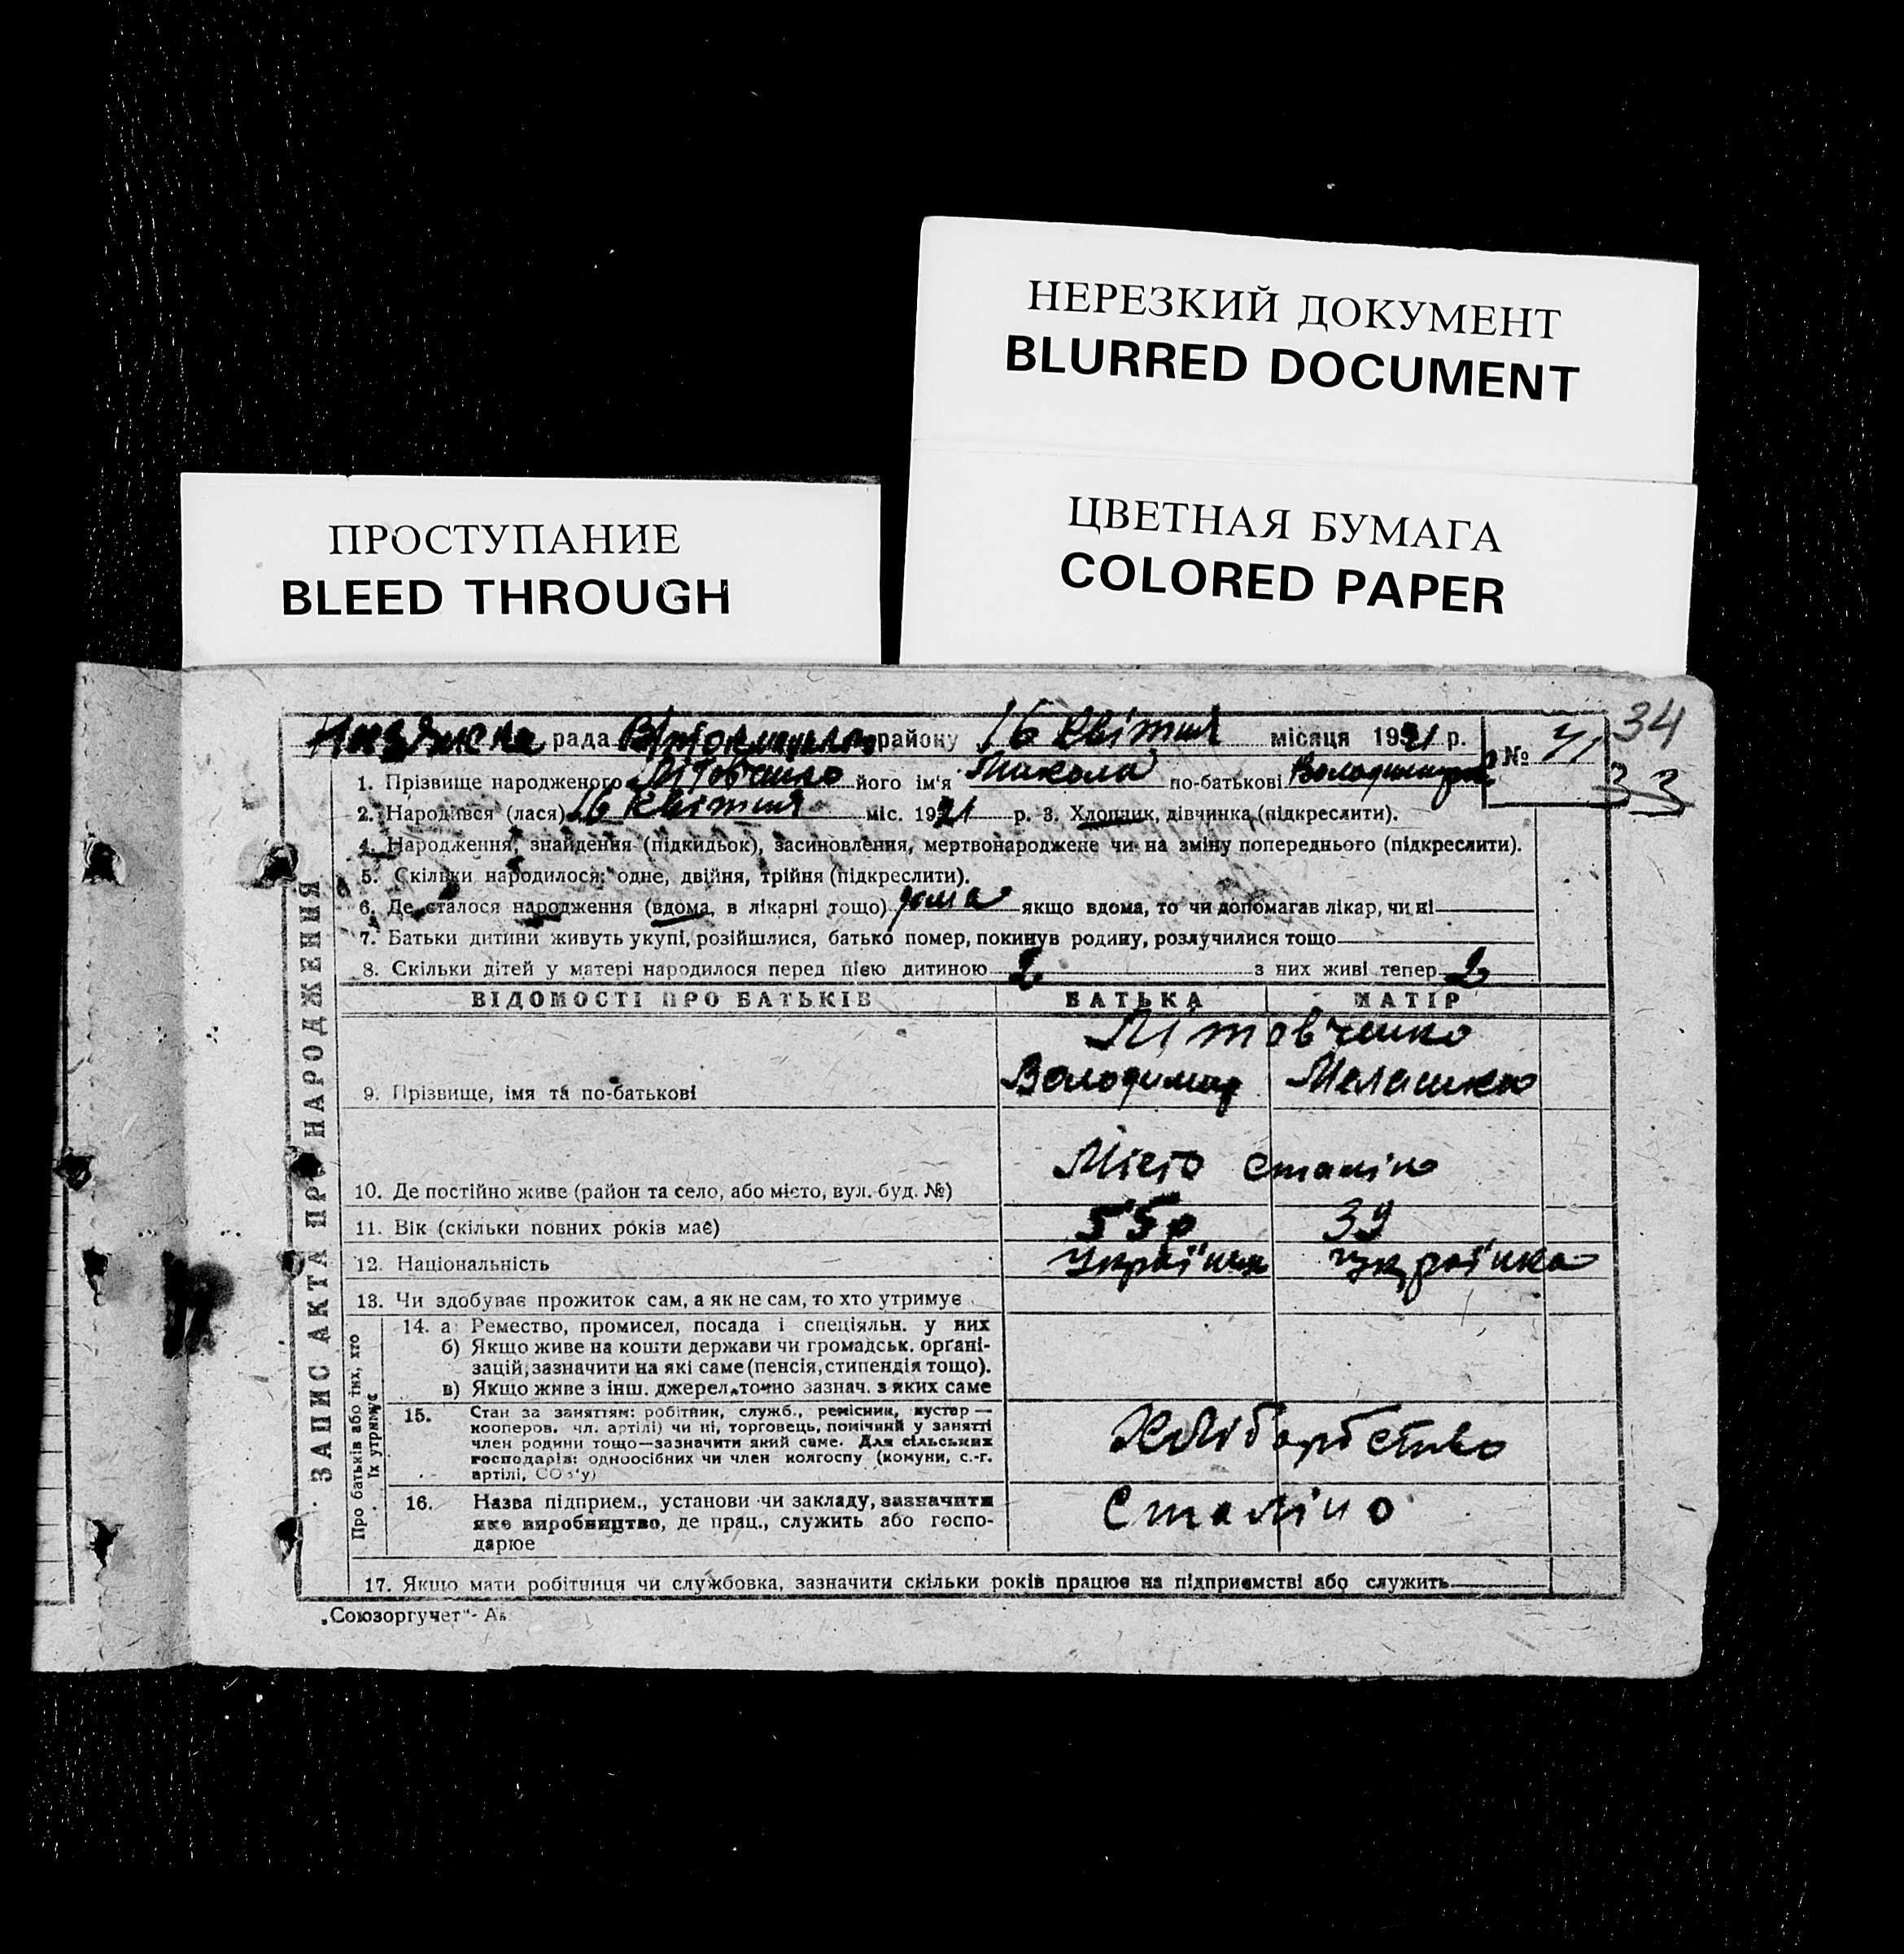 НЕРЕЗКИЙ ДОКУМЕНТ
BLURRED DOCUMENT
ЦВЕТНАЯ БУМАГА
COLORED PAPER
ПРОСТУПАНИЕ
BLEED THROUGH
34
рада району 16 Квітня місяця 1931 р. №
33
ЗАПИС АКТА ПРО НАРОДЖЕННЯ
1. Прізвище народженого Літовченко його ім'я Микола по-батькові
2. Народився (лася) 16 Квітня міс. 1931 р. 3. Хлопчик, дівчинка (підкреслити).
4. Народження, знайдення (підкидьок), засиновлення, мертвонароджене чи на зміну попереднього (підкреслити).
5. Скільки народилося: одне, двійня, трійня (підкреслити).
6. Де сталося народження (вдома, в лікарні тощо) дома якщо вдома, то чи допомагав лікар, чи ні
7. Батьки дитини живуть укупі, розійшлися, батько помер, покинув родину, розлучилися тощо
8. Скільки дітей у матері народилося перед цією дитиною 2 з них живі тепер 2
ВІДОМОСТІ ПРО БАТЬКІВ БАТЬКА МАТІР
Літовченко
9. Прізвище, імя та по-батькові Володимир
10. Де постійно живе (район та село, або місто, вул. буд. №) Місто Сталіно
11. Вік (скільки повних років має) 55р 39
12. Національність Українец Українка
13. Чи здобуває прожиток сам, а як не сам, то хто утримує
Про батьків або тих, хто
їх утримує
14. а) Ремество, промисел, посада і спеціяльн. у них
б) Якщо живе на кошти держави чи громадськ. орґані-
зацій, зазначити на які саме (пенсія, стипендія тощо).
в) Якщо живе з інш. джерел, точно зазнач. з яких саме
15. Стан за заняттям: робітник, служб., ремісник, кустар —
кооперов. чл. артілі) чи ні, торговець, помічний у занятті
член родини тощо—зазначити який саме. Для сільських
господарів: одноосібних чи член колгоспу (комуни, с.-г.
артілі, СОЗ'у)
Хліборобство
16. Назва підприєм., установи чи закладу, зазначити
яке виробництво, де прац., служить або госпо-
дарює
Сталіно
17. Якщо мати робітниця чи службовка, зазначити скільки років працює на підприємстві або служить
„Союзоргучет"-